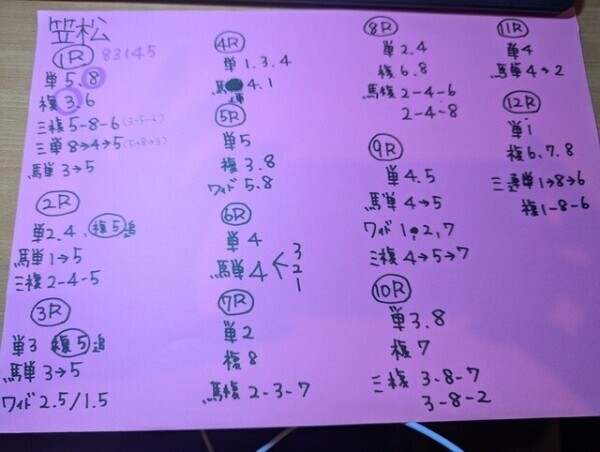 笠松
1R 83145
単 5.8
複 3.6
三複 5-8-6 (3-5-6)
三単 8→4→5 (5→8→3)
馬単 3→5
2R
単 2.4 、複5追
馬単 1→5
三複 2-4-5
3R
単3 複5追
馬単 3→5
ワイド 2.5/1.5
4R
単 1.3.4
馬単 4.1
5R
単5
複 3.8
ワイド 5.8
6R
単4
馬単 4< 3
2
1
7R
単2
複8
馬複 2-3-7
8R
単 2.4
複 6.8
馬複 2-4-6
2-4-8
9R
単 4.5
馬単 4→5
ワイド 1・2,7
三複 4→5→7
10R
単 3.8
複 7
三複 3-8-7
3-8-2
11R
単4
馬単 4→2
12R
単1
複 6.7.8
三単 1→8→6
複 1-8-6